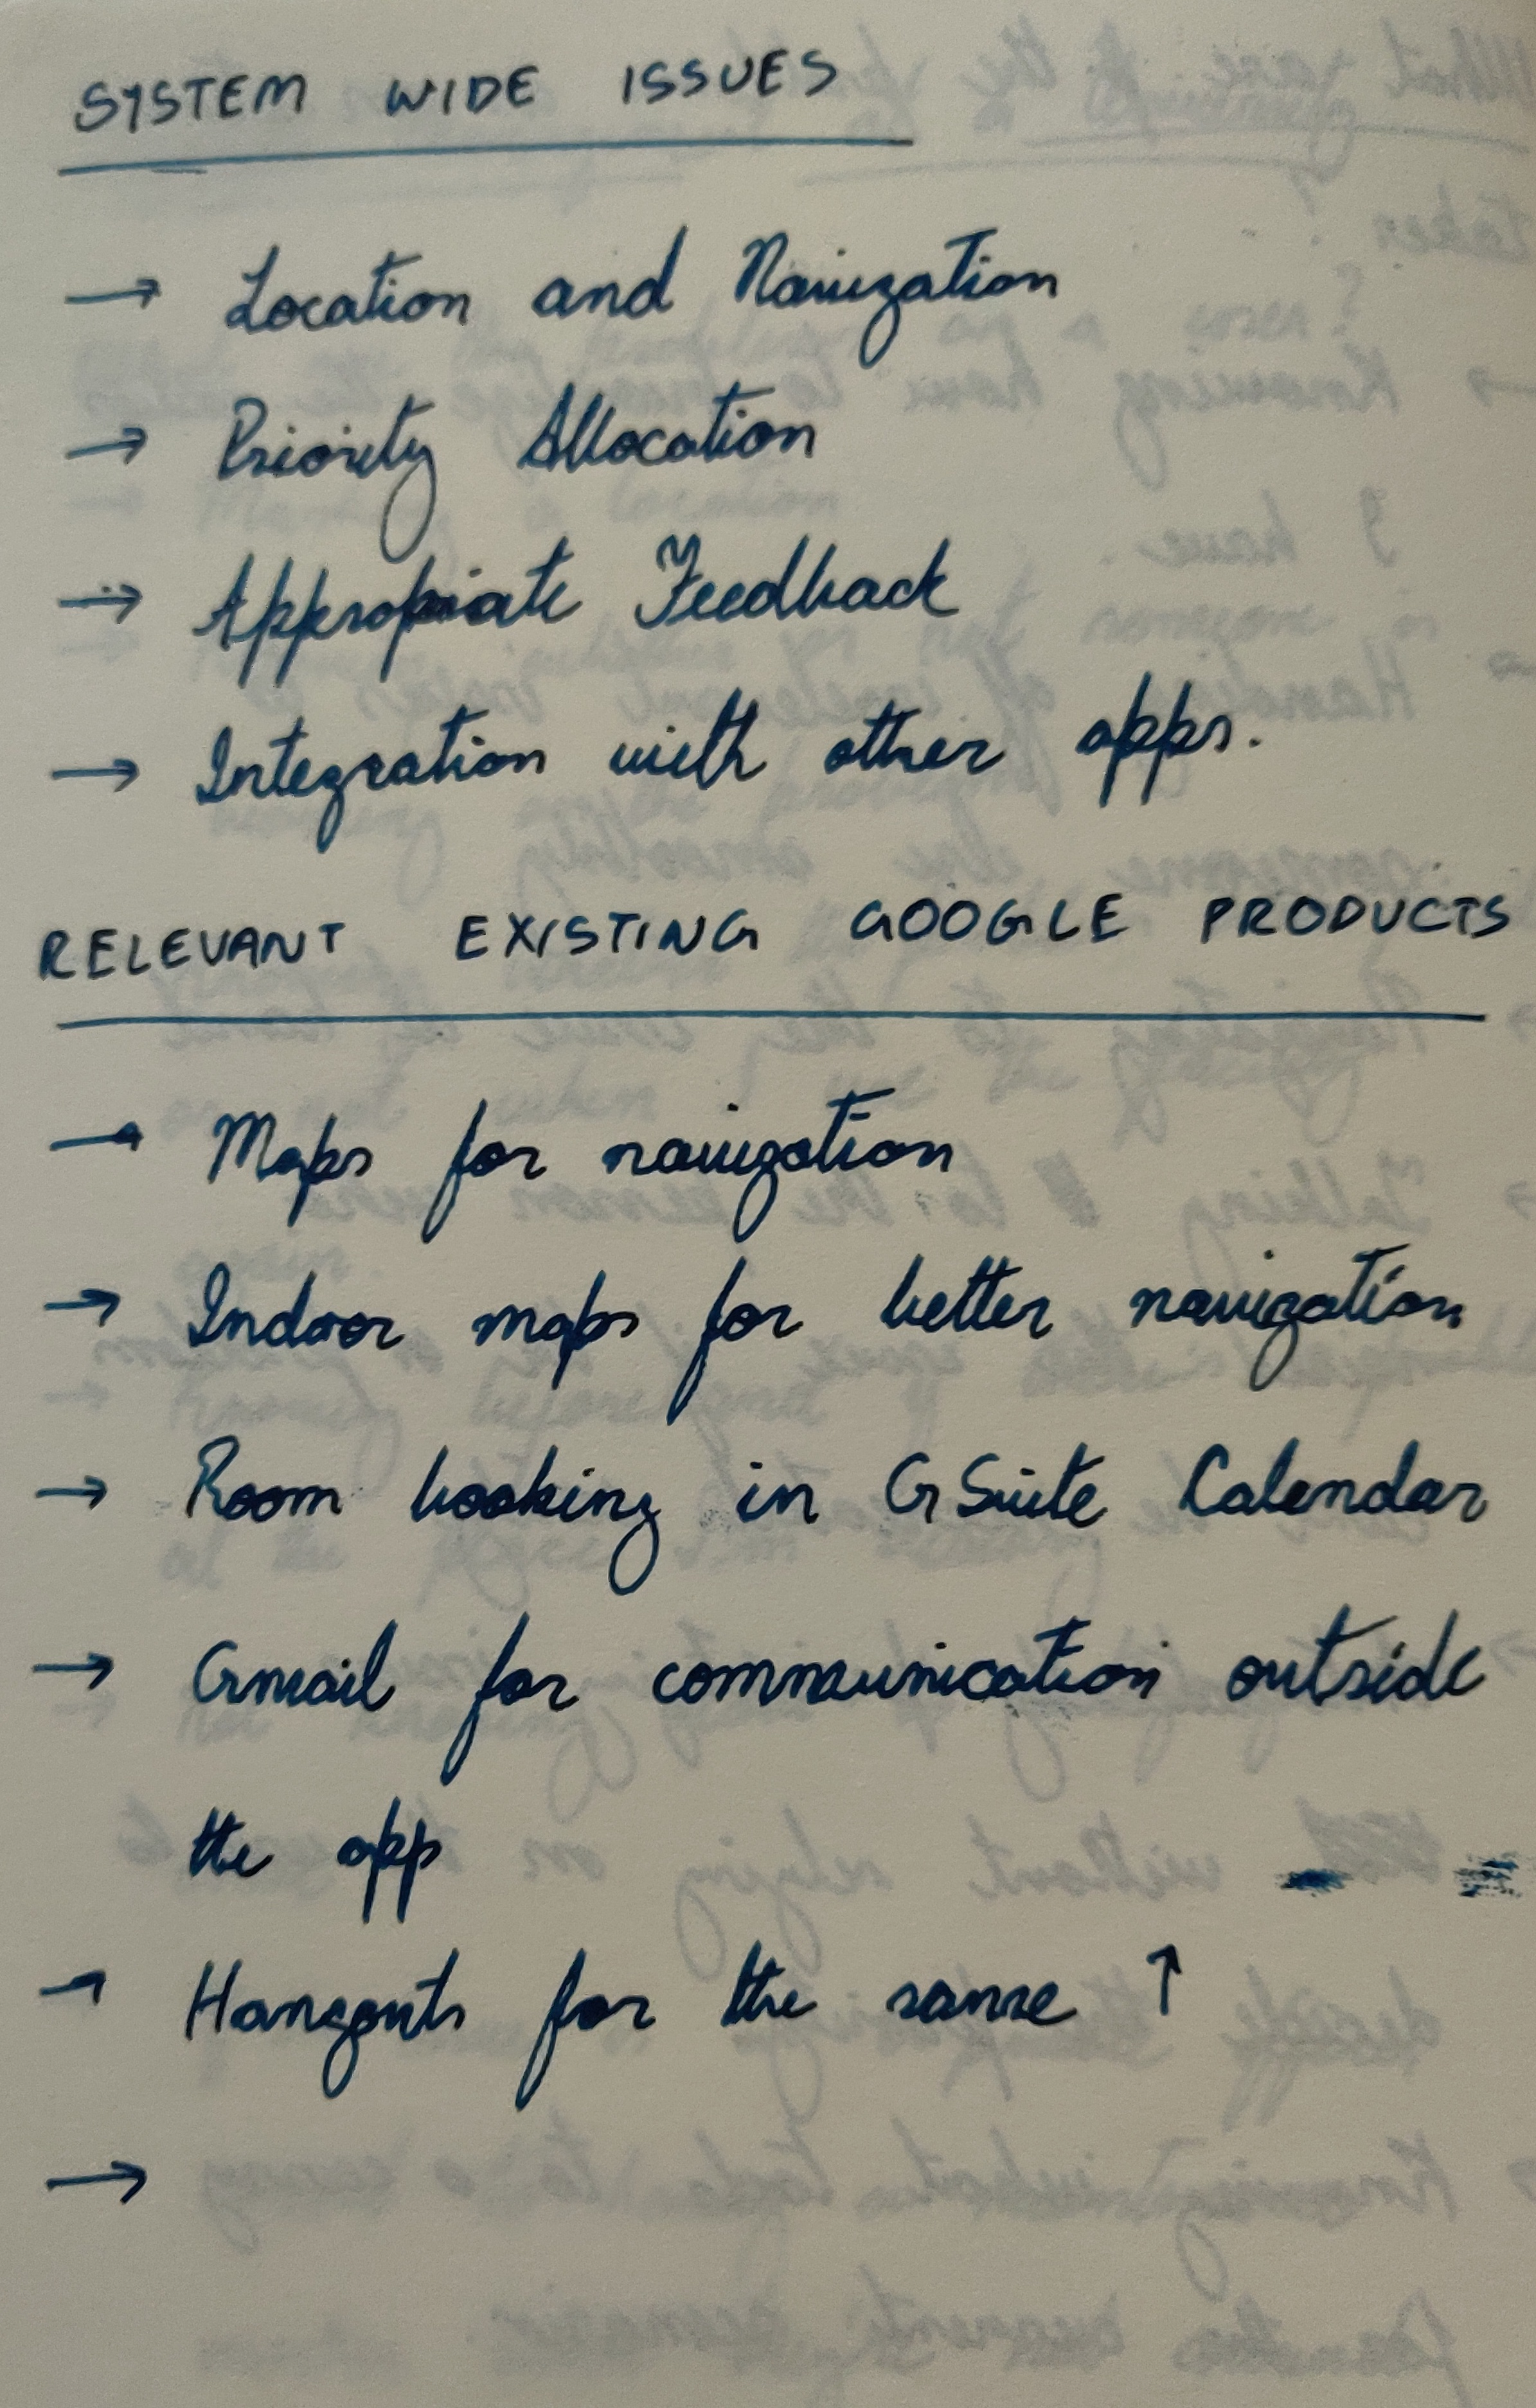 SYSTEM WIDE ISSUES
→ Location and Navigation
→ Priority Allocation
→ Appropiate Feedback
→ Integration with other apps.
RELEVANT EXISTING GOOGLE PRODUCTS
→ Maps for navigation
→ Indoor maps for better navigation
→ Room booking in GSuite Calendar
→ Gmail for communication outside
the app
→ Hangouts for the same ↑
→